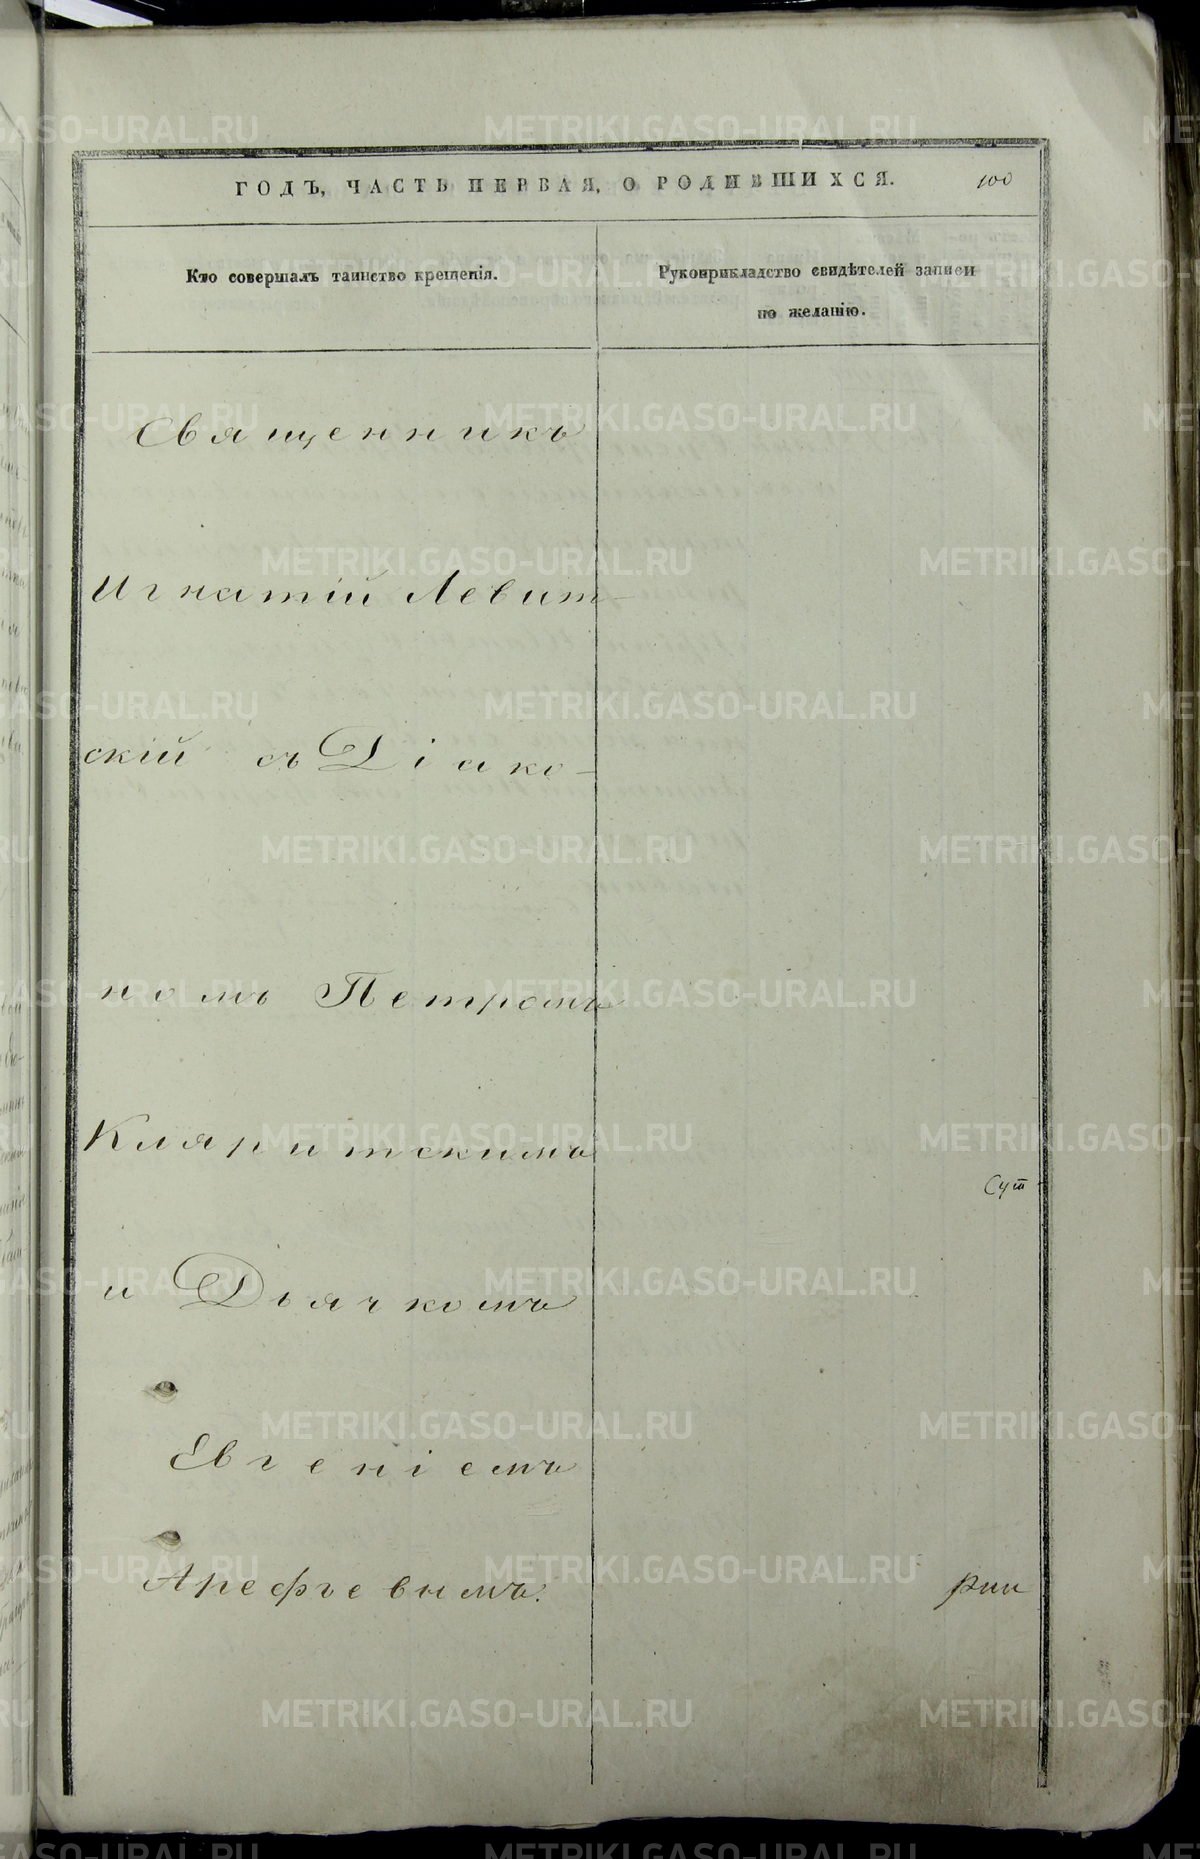 ГОДЪ, ЧАСТЬ ПЕРВАЯ, О РОДИВШИХСЯ. 100
Кто совершалъ таинство крещенія.
Рукоприкладство свидѣтелей записи
по желанію.
Священникъ
Игнатій Левит-
скій съ Діако-
номъ Петромъ
Кляритскимъ
и Дьячкомъ
Евгеніемъ
Арефьевымъ.
METRIKI.GASO-URAL.RU